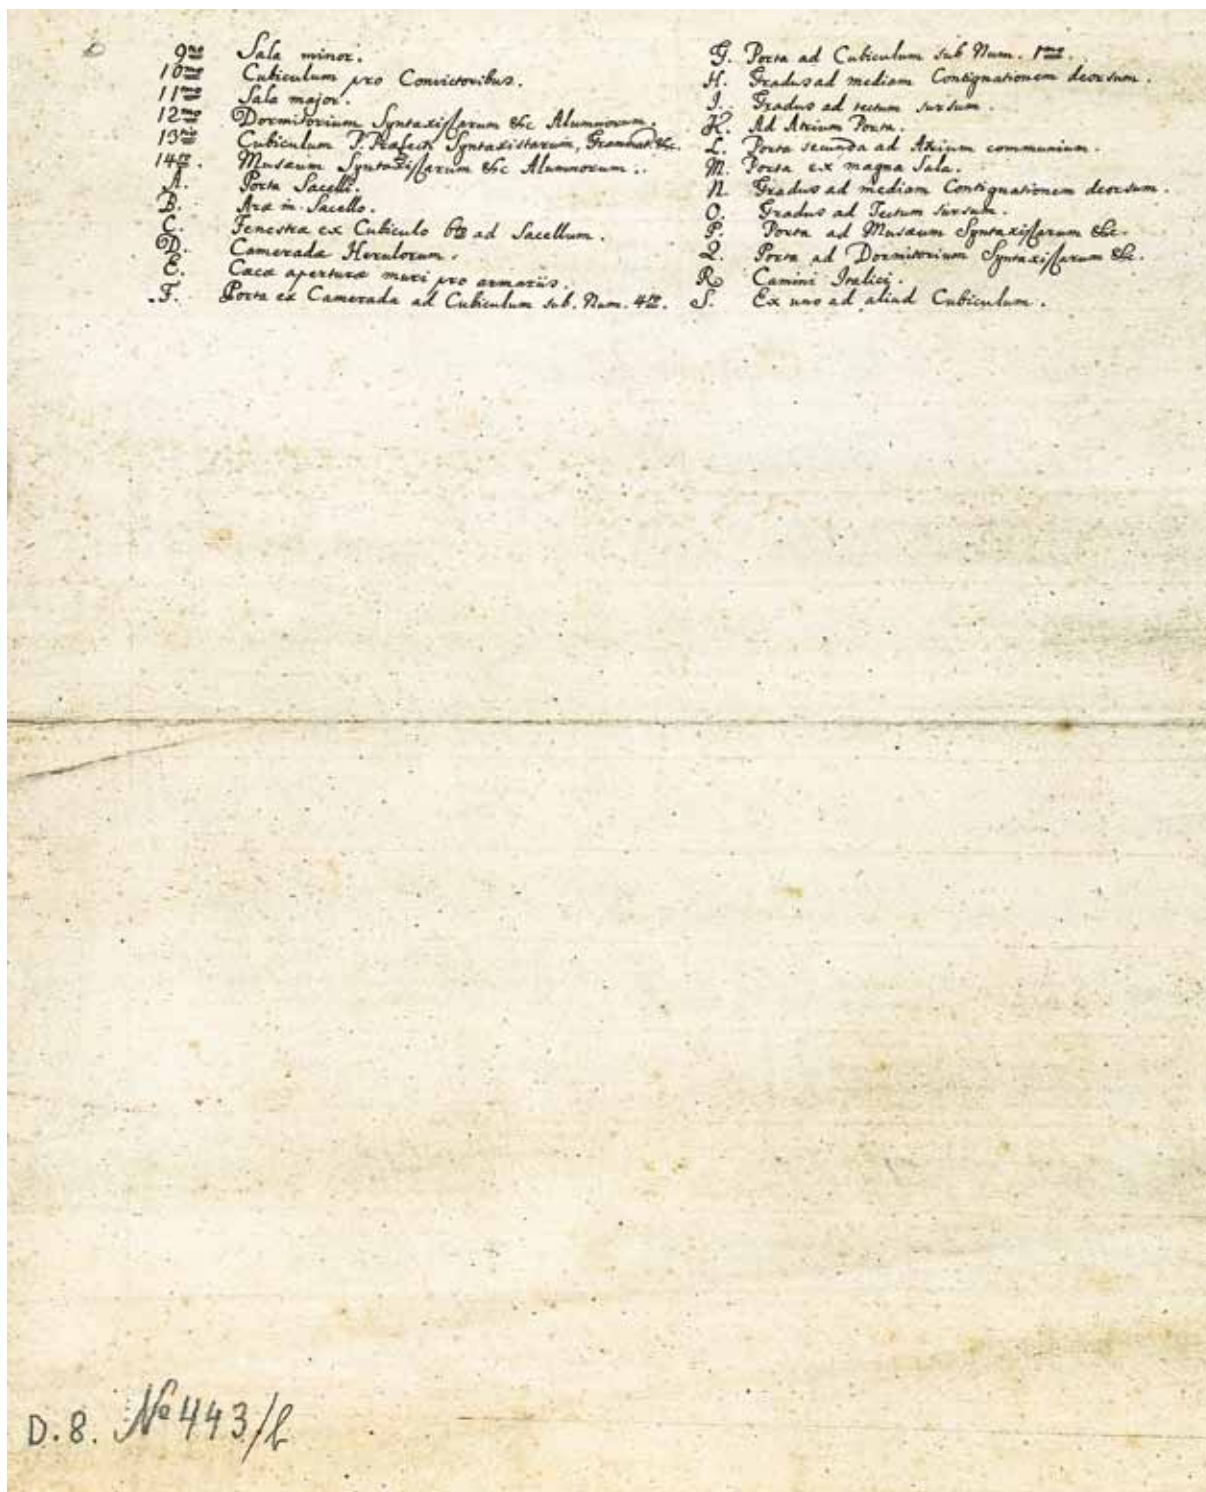 9no Sala minor.
10mo Cubiculum pro Convictoribus.
11mo Sala major.
12mo Dormitorium Syntaxistarum &c Alumnorum.
13tio Cubiculum P. Præfecti Syntaxistarum, Grammat. &c.
14to. Musæum Syntaxistarum &c Alumnorum.
A. Porta Sacelli.
B. Ara in Sacello.
C. Fenestra ex Cubiculo 6to ad Sacellum.
D. Camerada Herulorum.
E. Cæcæ aperturæ muri pro armariis.
F. Porta ex Camerada ad Cubiculum sub. Num. 4to.
G. Porta ad Cubiculum sub Num. 1mo.
H. Gradus ad mediam Contignationem deorsum.
J. Gradus ad tectum sursum.
K. Ad Atrium Porta.
L. Porta secunda ad Atrium communium.
M. Porta ex magna Sala.
N. Gradus ad mediam Contignationem deorsum.
O. Gradus ad Tectum sursum.
P. Porta ad Musæum Syntaxistarum &c.
Q. Porta ad Dormitorium Syntaxistarum &c.
R. Camini Italici.
S. Ex uno ad aliud Cubiculum.
D.8. No 443/b